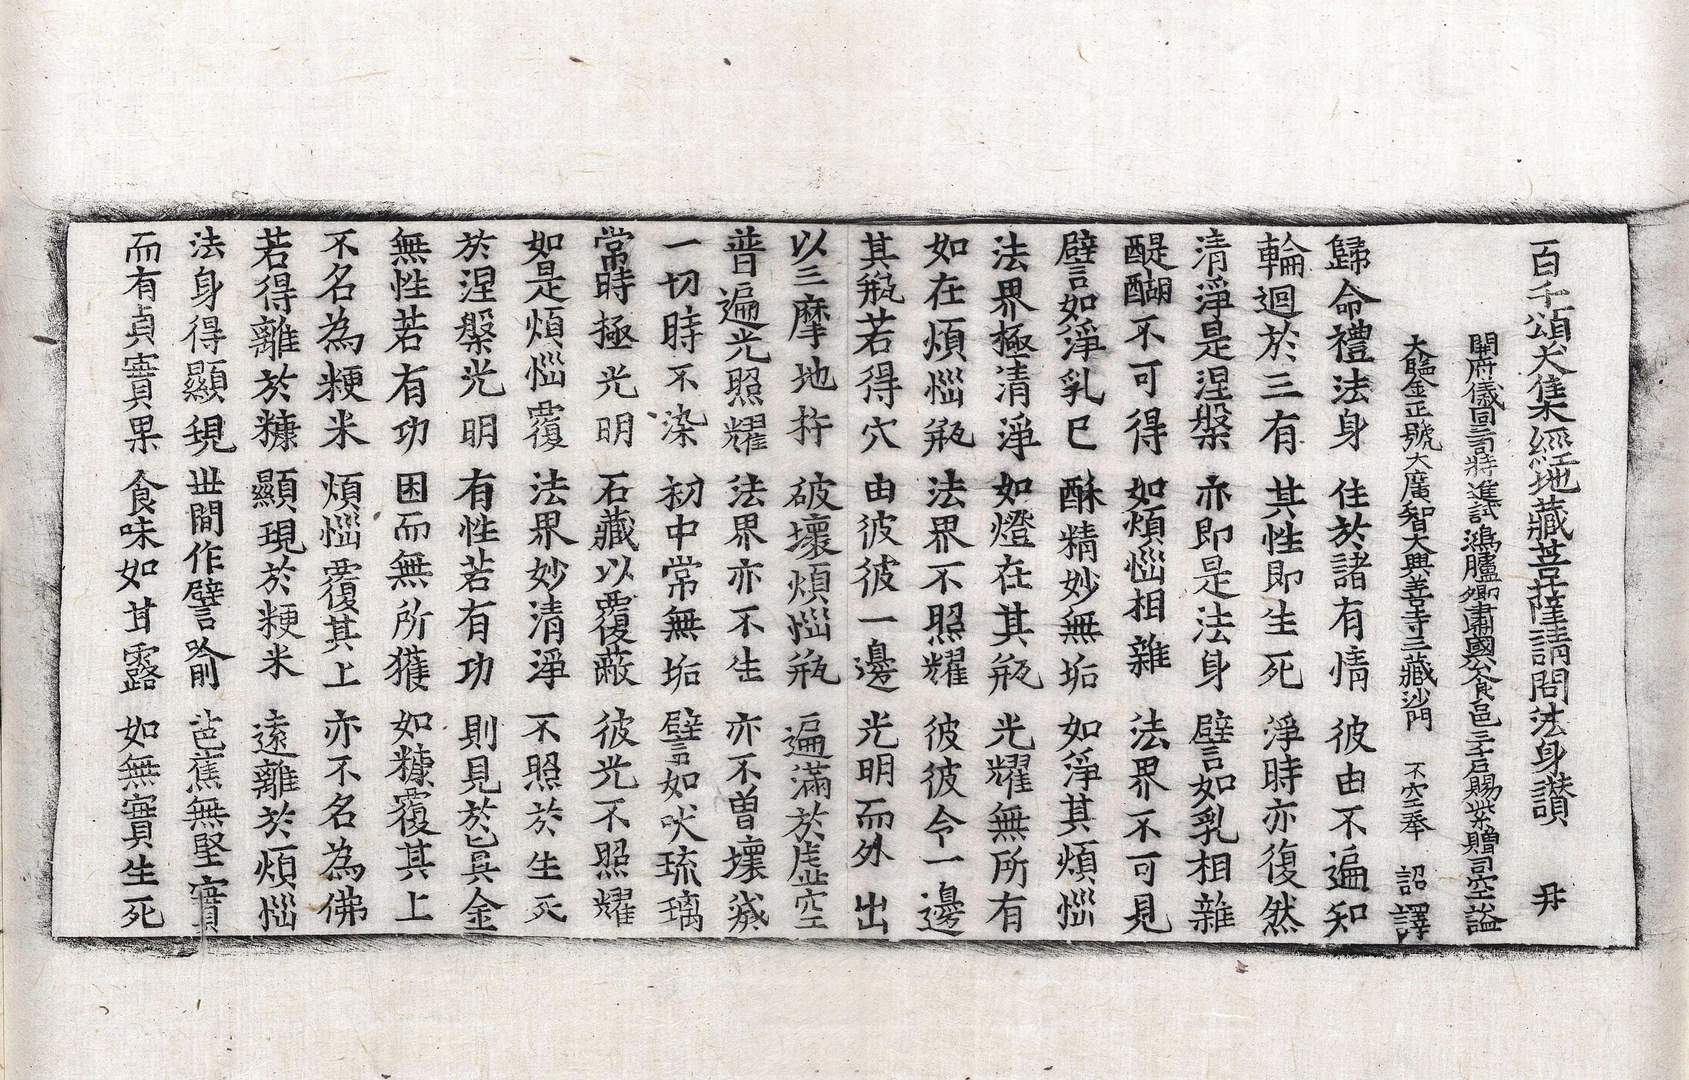 百千頌大集經地藏菩薩請問法身讃 丹
開府儀同三司特進試鴻臚卿肅國公食邑三千戶賜紫贈司空謚
大鑑金正號大廣智大興善寺三藏沙門 不空奉 詔譯
歸命禮法身 住於諸有情 彼由不遍知
輪迴於三有 其性即生死 淨時亦復然
清淨是涅槃 亦即是法身 譬言如乳相雜
醍醐不可得 如煩惱相雜 法界不可見
譬如淨乳已 酥精妙無垢 如淨其煩惱
法界極清淨 如燈在其瓶 光耀無所有
如在煩惱瓶 法界不照耀 彼彼令一邊
其瓶若得穴 由彼彼一邊 光明而外出
以三摩地杵 破壞煩惱瓶 遍滿於虛空
普遍光照耀 法界亦不生 亦不曾壞滅
一切時不染 初中常無垢 譬如吠琉璃
常時極光明 石藏以覆蔽 彼光不照耀
如是煩惱覆 法界妙清淨 不照於生死
於涅槃光明 有性若有功 則見於真金
無性若有功 困而無所獲 如糠覆其上
不名為粳米 煩惱覆其上 亦不名為佛
若得離於糠 顯現於粳米 遠離於煩惱
法身得顯現 世間作譬喻 芭蕉無堅實
而有貞實果 食味如甘露 如無實生死